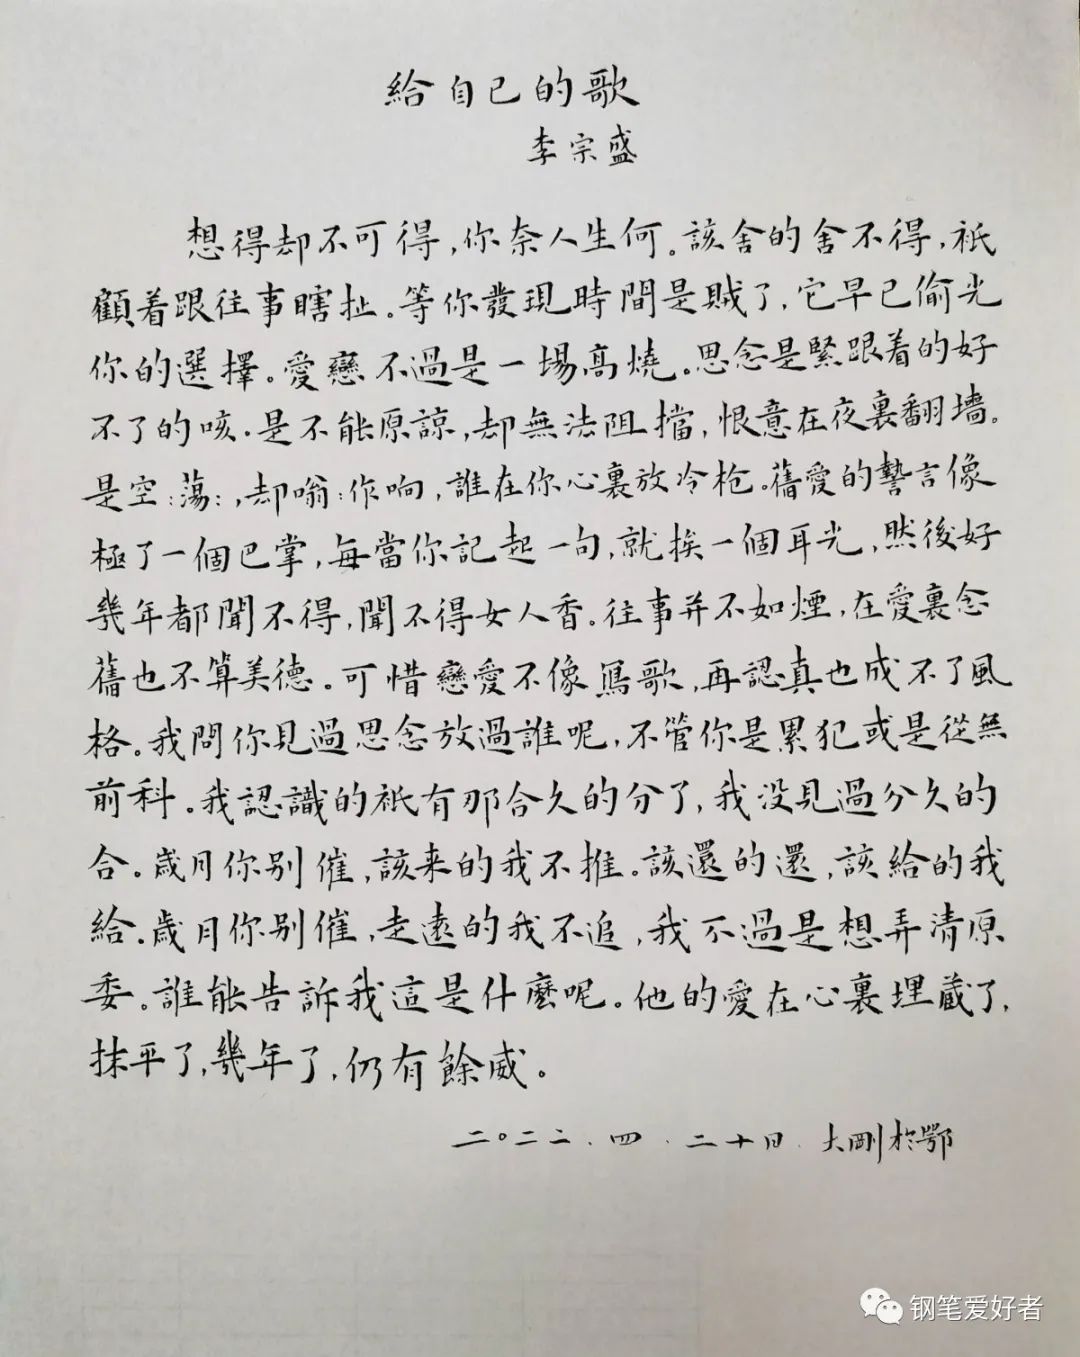 給自己的歌
李宗盛
想得却不可得，你奈人生何。該舍的舍不得，祇
顧着跟往事瞎扯。等你發現時間是賊了，它早已偷光
你的選擇。愛戀不過是一場高燒。思念是緊跟着的好
不了的咳．是不能原諒，却無法阻擋，恨意在夜裏翻墻。
是空：蕩：，却嗡：作响，誰在你心裏放冷枪。舊愛的誓言像
極了一個巴掌，每當你記起一句，就挨一個耳光，然後好
幾年都聞不得，聞不得女人香。往事并不如煙，在愛裏念
舊也不算美德。可惜戀愛不像寫歌，再認真也成不了風
格。我問你見過思念放過誰呢，不管你是累犯或是從無
前科。我認識的祇有那合久的分了，我没見過分久的
合。歲月你别催，該来的我不推。該還的還，該給的我
給．歲月你别催，走遠的我不追，我不過是想弄清原
委。誰能告訴我這是什麽呢。他的愛在心裏埋藏了，
抹平了，幾年了，仍有餘威。
二〇二二．四．二十日．大刚於鄂
钢笔爱好者